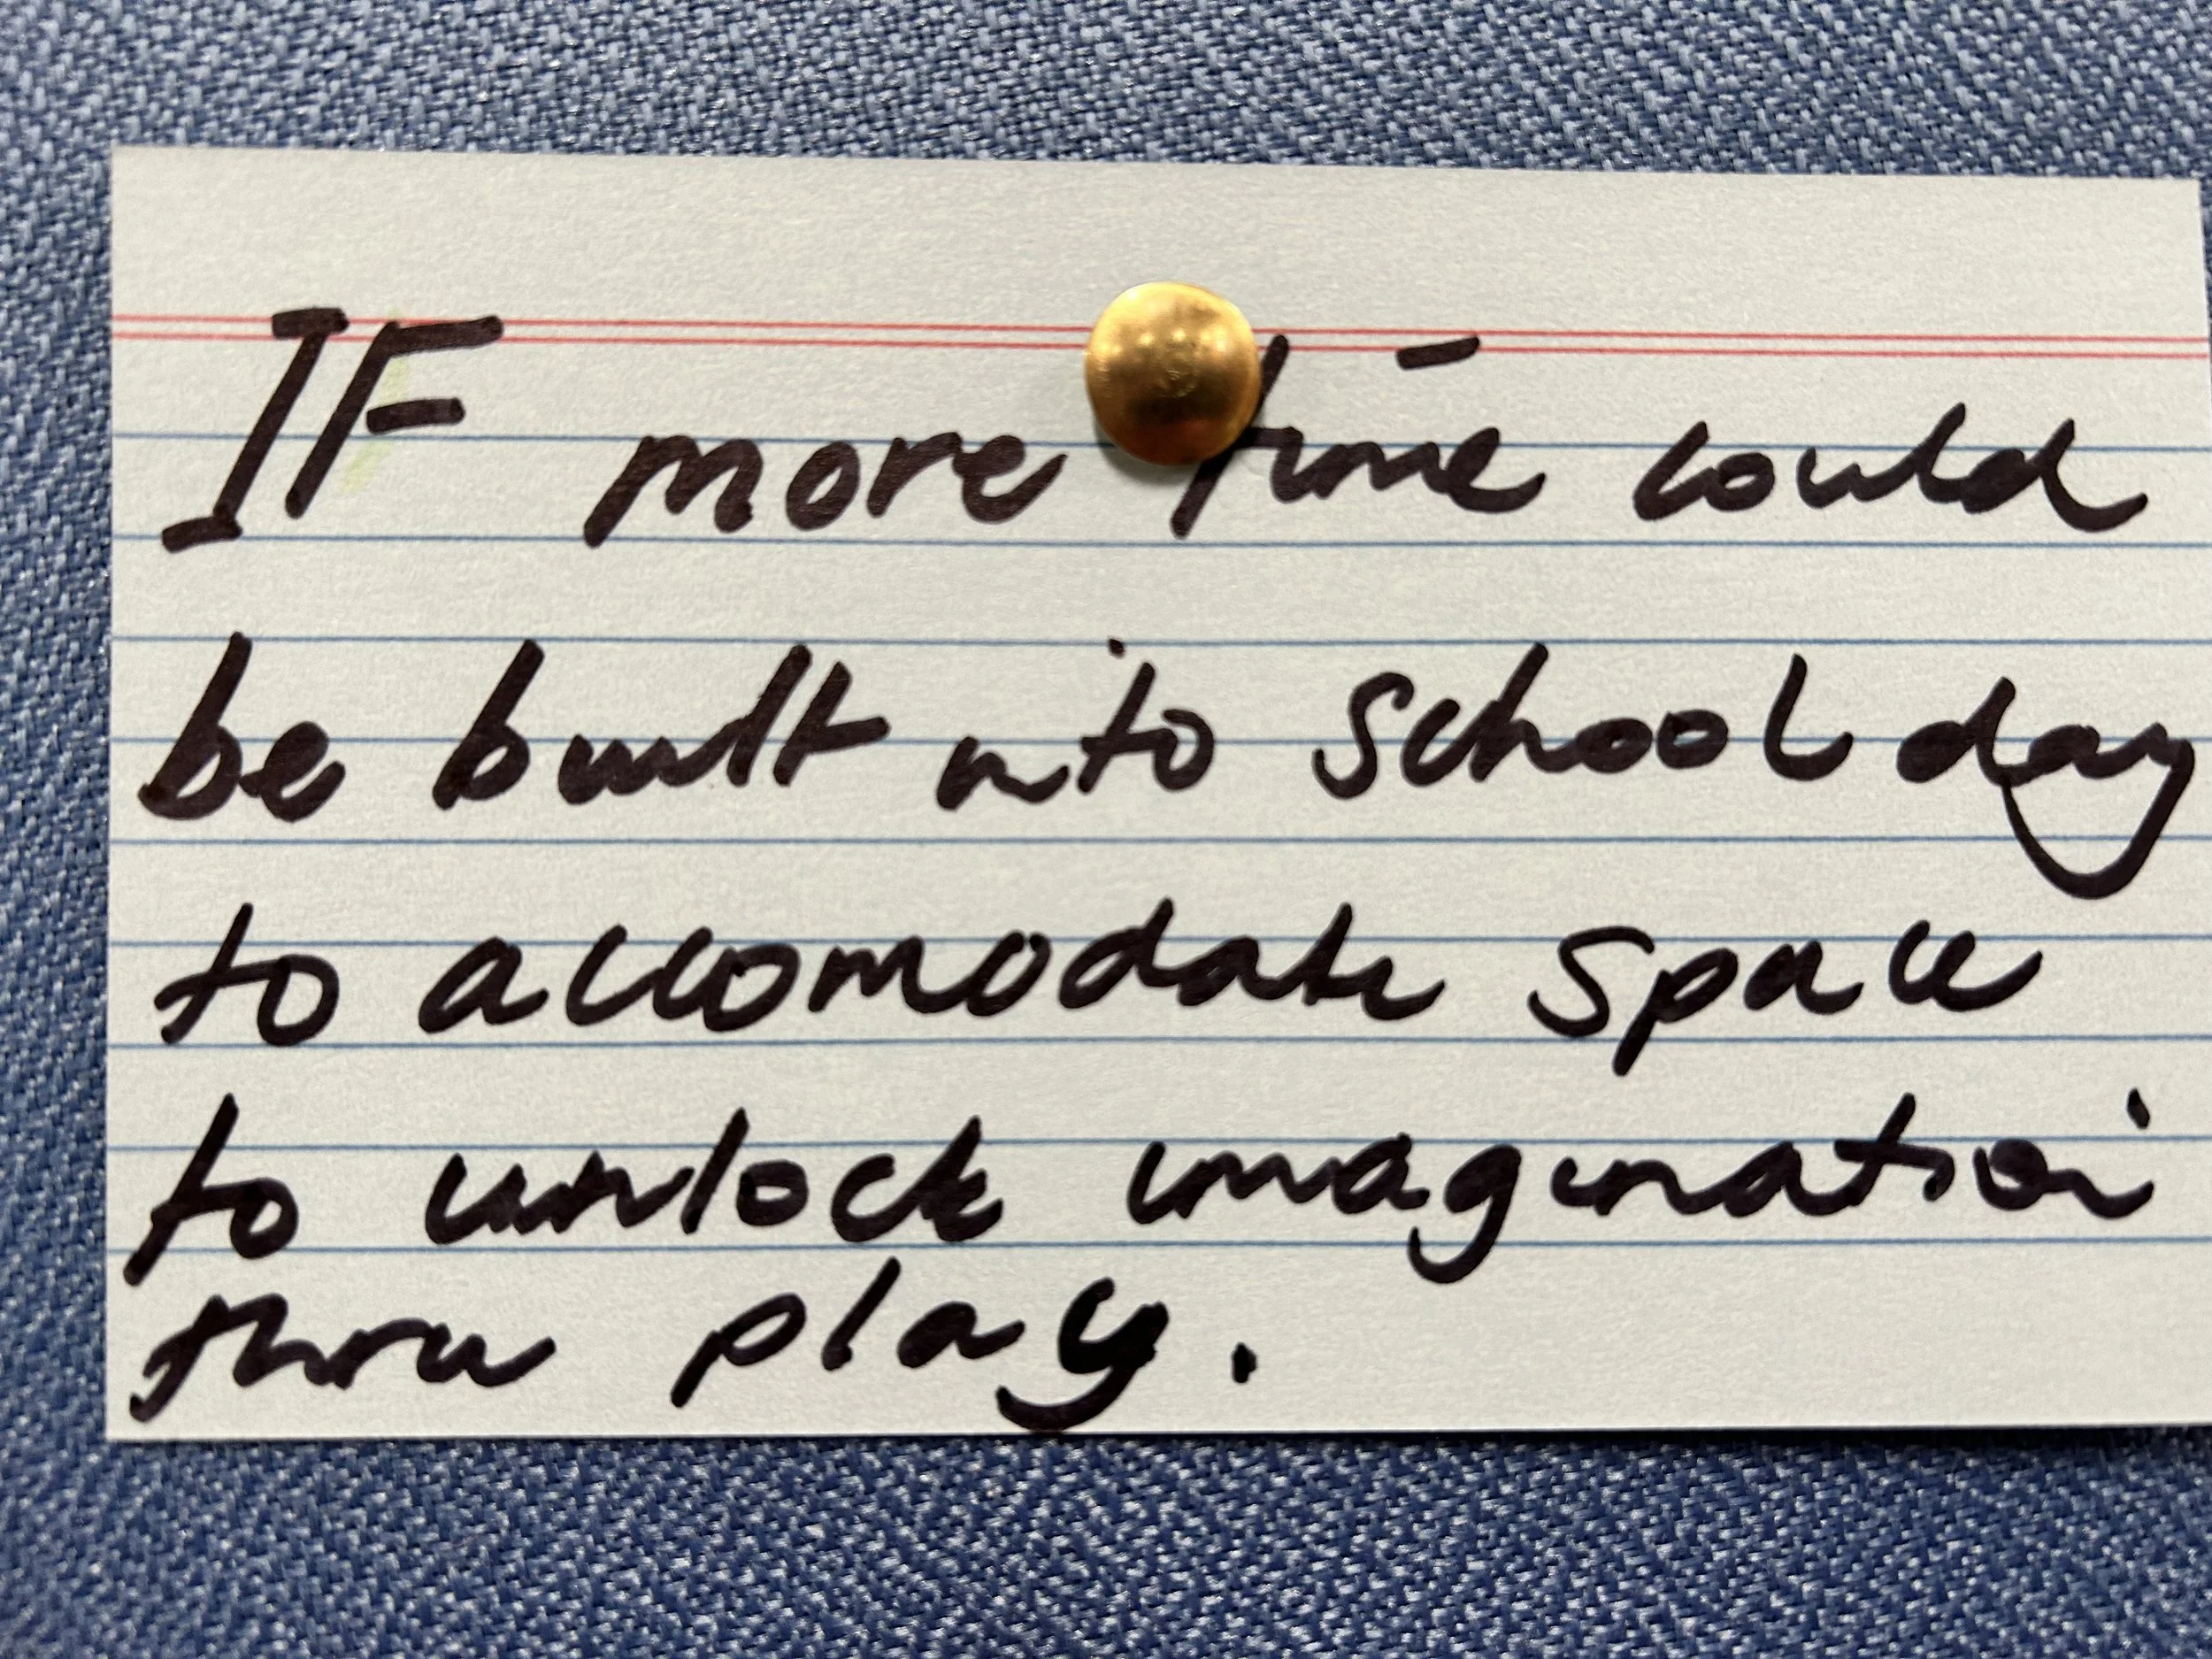 IF more time could
be built into school day
to accomodate space
to unlock imagination
thru play.